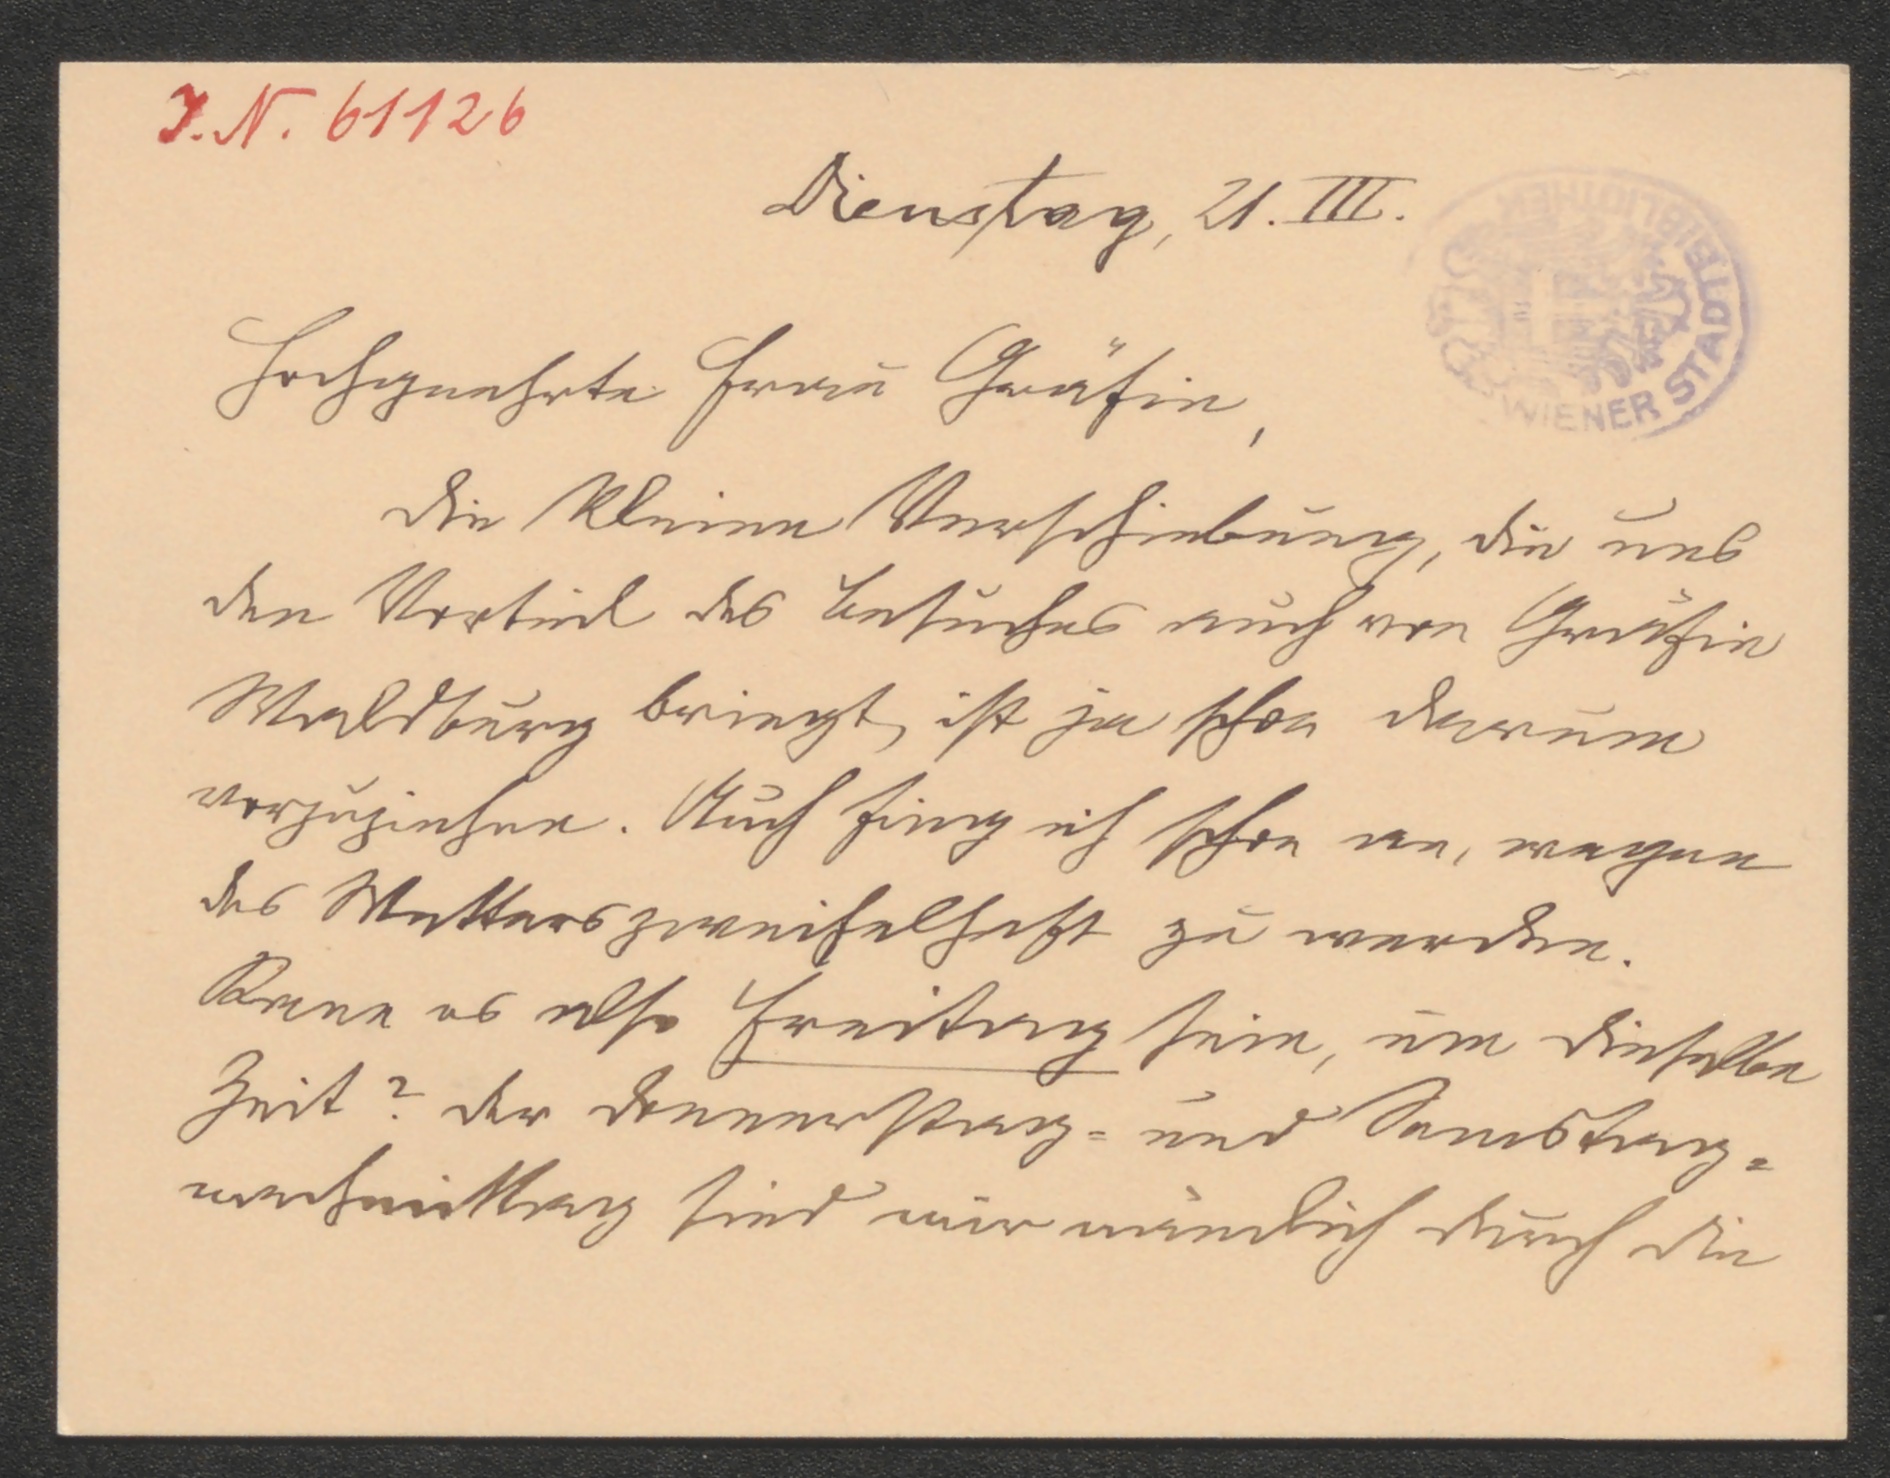 I.N. 61126
Dienstag, 21. III.
WIENER STADTBIBLIOTHEK
Hochgeehrte Frau Gräfin,
die kleine Verschiebung, die uns
den Vorteil des Besuches auch von Gräfin
Waldburg bringt, ist ja schon darum
vorzuziehen. Auch fing ich schon an, wegen
des Wetters zweifelhaft zu werden.
Kann es also Freitag sein, um dieselbe
Zeit? Der Donnerstag- und Samstag-
nachmittag sind mir nämlich durch die